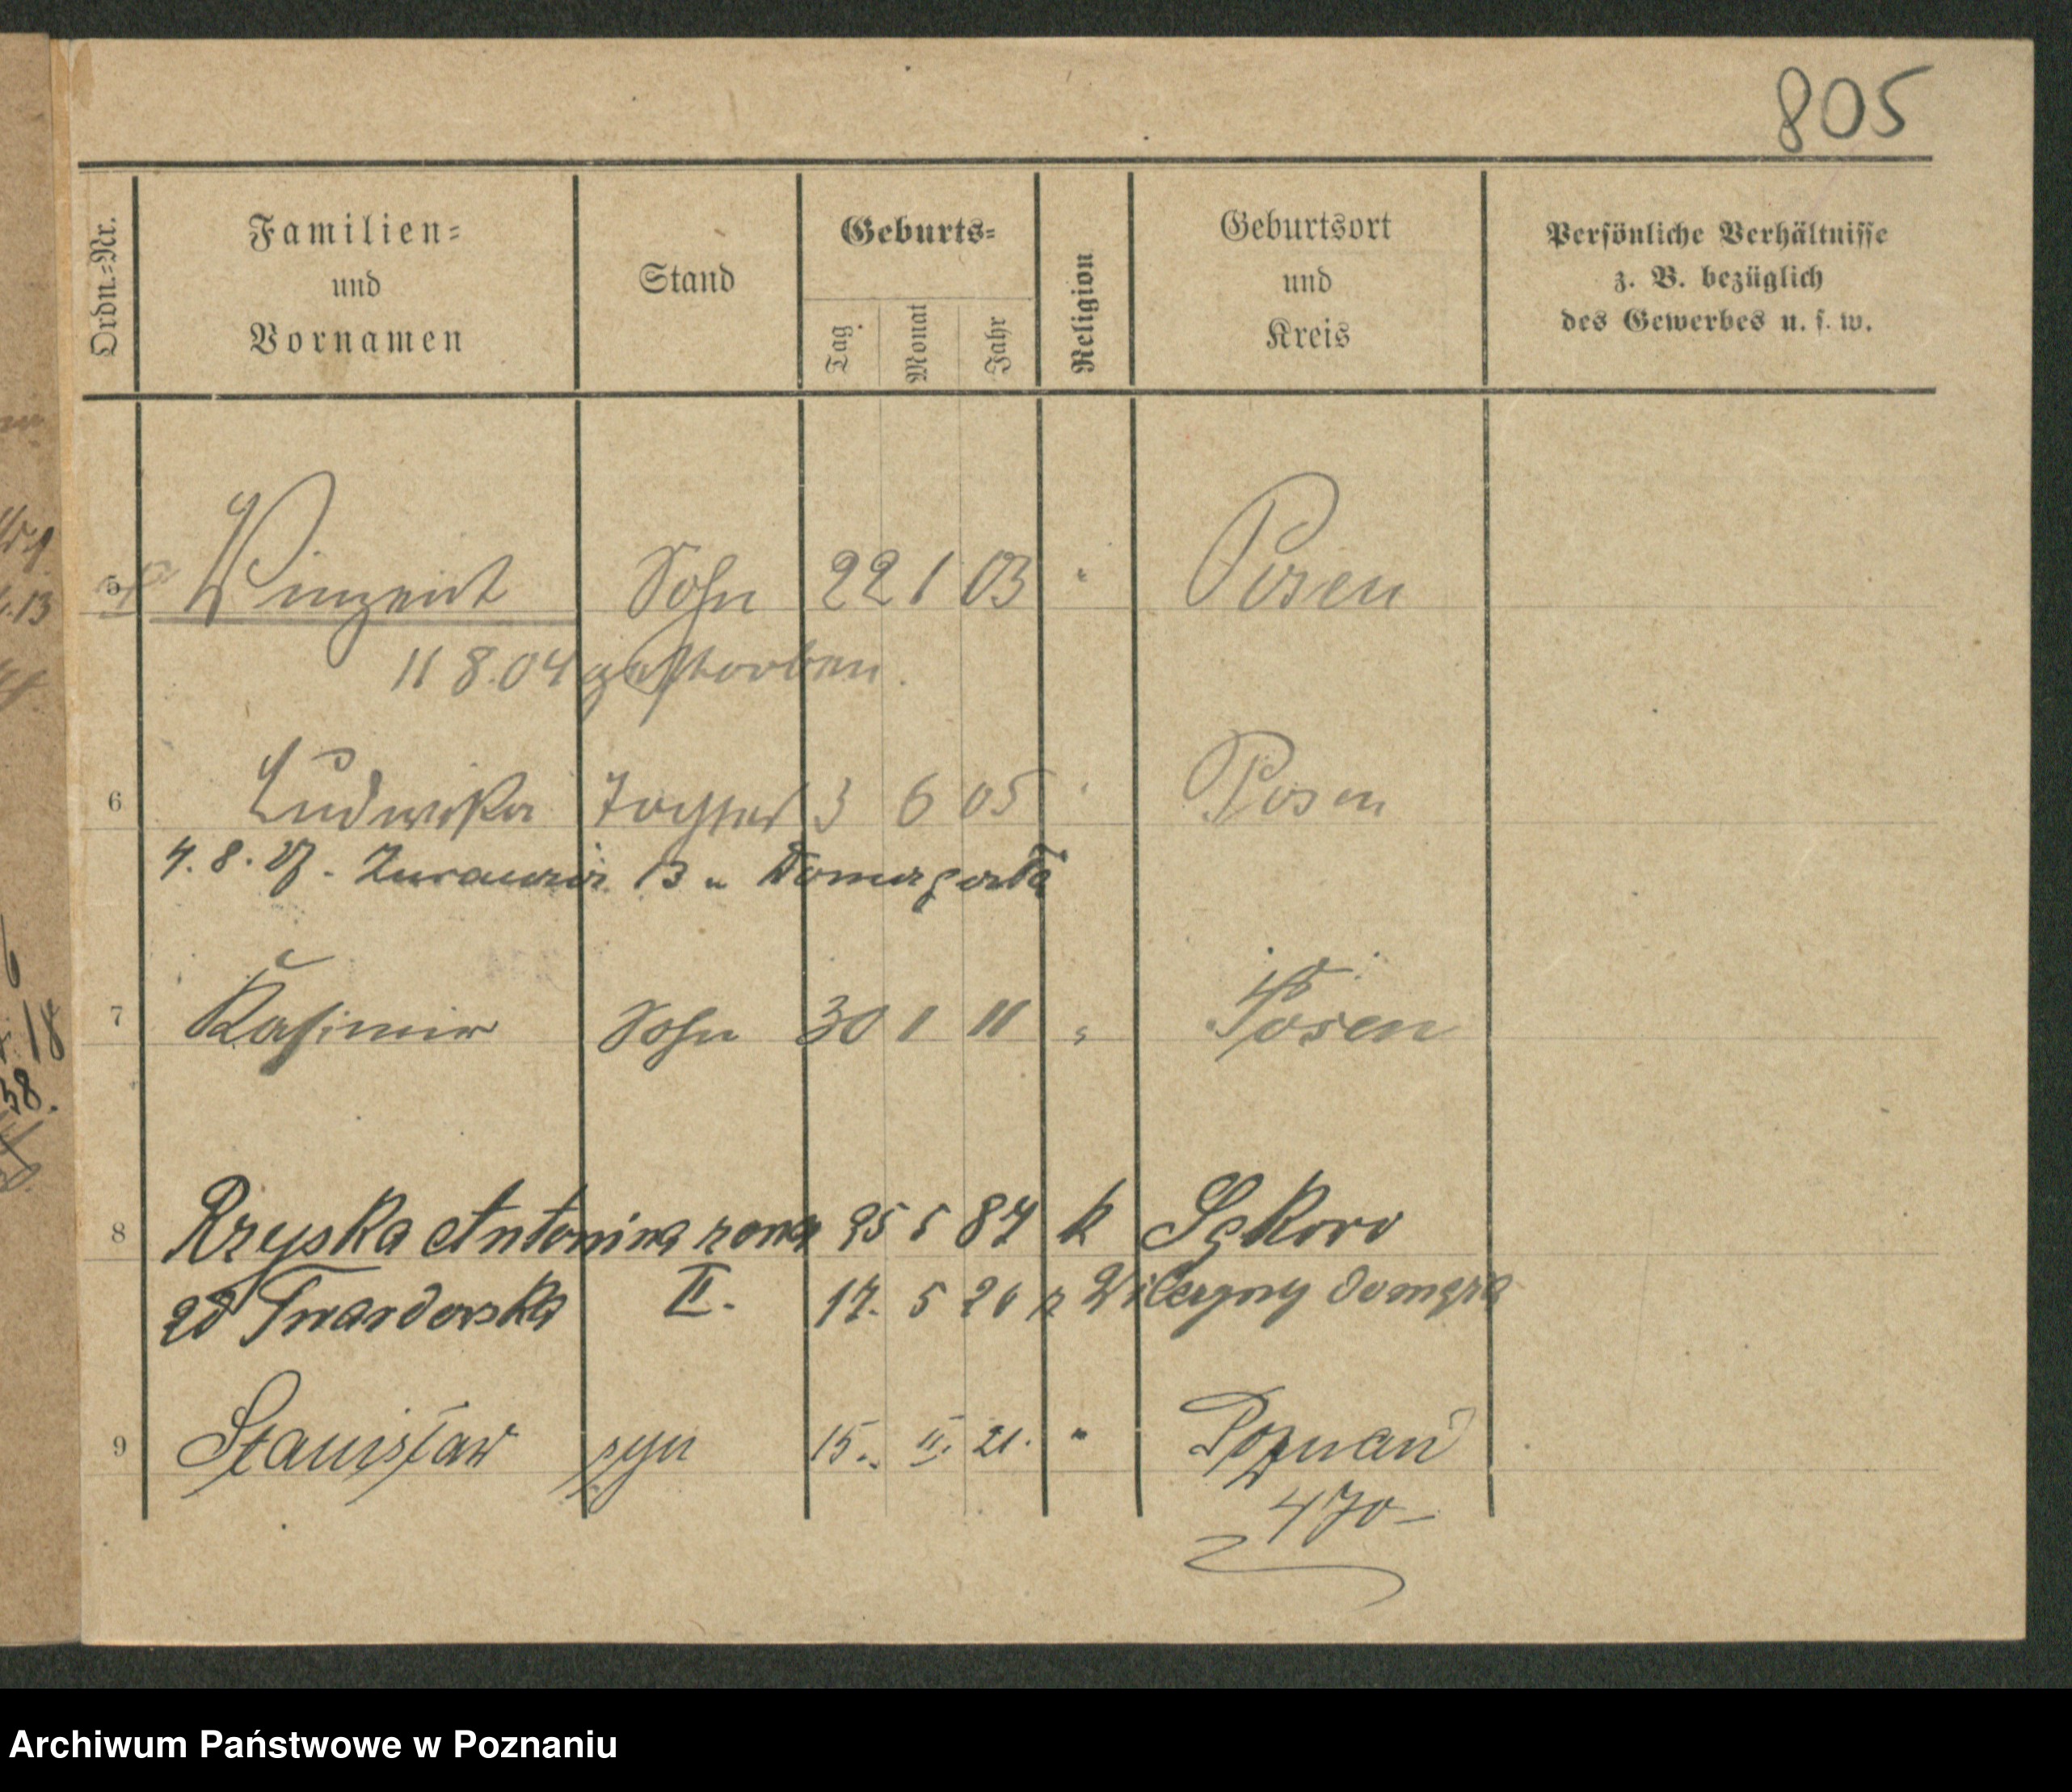 805
Ordn.-Nr.
Familien- und Vornamen
Stand
Geburts-
Tag
Monat
Jahr
Religion
Geburtsort und Kreis
Persönliche Verhältnisse z. B. bezüglich des Gewerbes u. s. w.
5 Winzent Sohn 22 1 03 " Posen
11 8.04 gestorben.
6 Ludwika Tochter 3 6 05 " Posen
4. 8. 13 u
7 Kasimir Sohn 30 1 11 " Posen
8 Antonina 25 5 87 k
Twardowska II. 17. 5 20
9 Stanisław syn 15. II. 21. " Poznań
470-
Archiwum Państwowe w Poznaniu